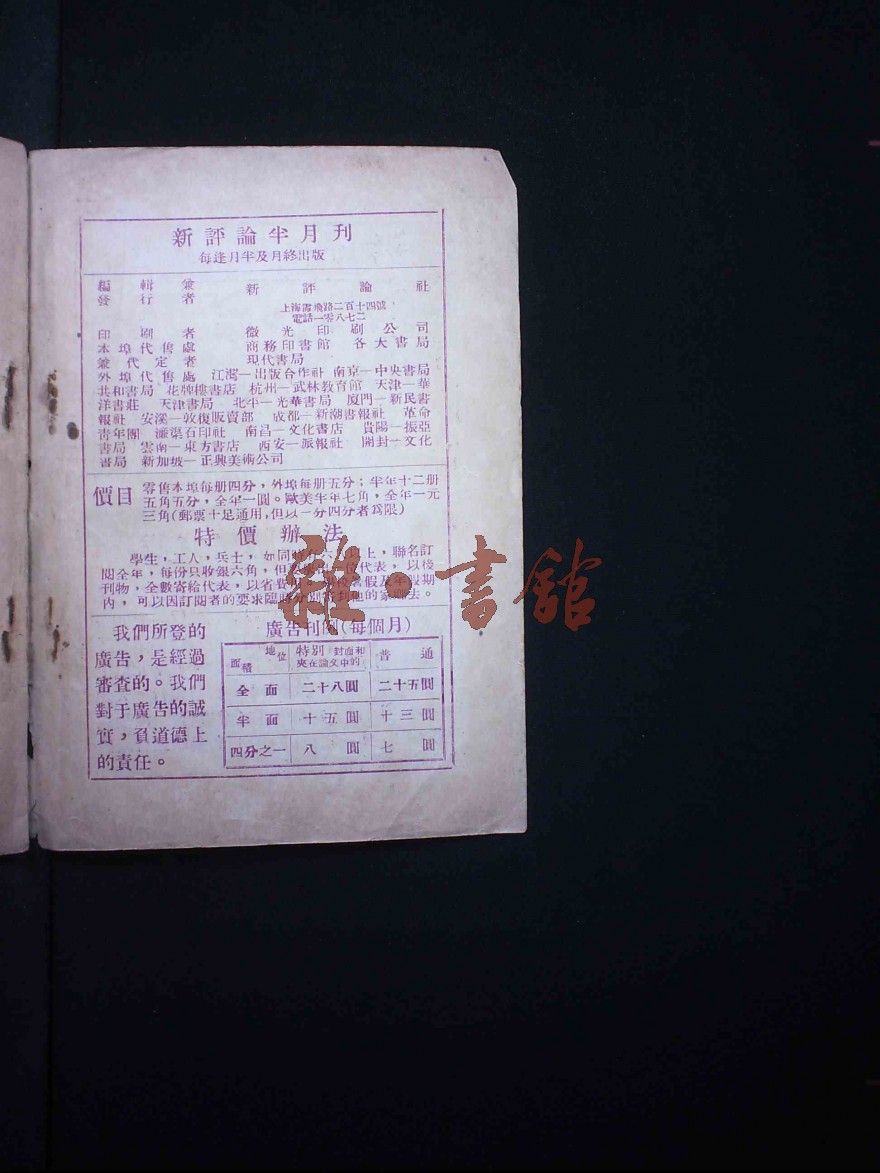 新評論半月刊
每逢月半及月終出版
編輯兼發行者 新評論社
上海霞飛路二百十四號
電話一零八七二
印刷者 微光印刷公司
本埠代售處 商務印書館 各大書局
兼代定者 現代書局
外埠代售處 江灣—出版合作社 南京—中央書局
共和書局 花牌樓書店 杭州—武林教育館 天津—華
洋書莊 天津書局 北平—光華書局 廈門—新民書
報社 安溪—敦復販賣部 成都—新潮書報社 革命
靑年團 瀘渠石印社 南昌—文化書店 貴陽—振亞
書局 雲南—東方書店 西安—派報社 開封—文化
書局 新加坡—正興美術公司
價目 零售本埠每册四分,外埠每册五分;半年十二册
五角五分,全年一圓。歐美半年七角,全年一元
三角(郵票十足通用,但以一分四分者爲限)
特價辦法
學生,工人,兵士,如同時在六 以上,聯名訂
閱全年,每份只收銀六角,但 代表,以後
刊物,全數寄給代表,以省費 假及年假期
內,可以因訂閱者的要求臨時分別寄到他的家 去。
我們所登的
廣告,是經過
審查的。我們
對于廣告的誠
實,負道德上
的責任。
廣告刊例(每個月)
面積 地位 特別 封面和夾在論文中的 普通
全面 二十八圓 二十五圓
半面 十五圓 十三圓
四分之一 八圓 七圓
雜·書舘